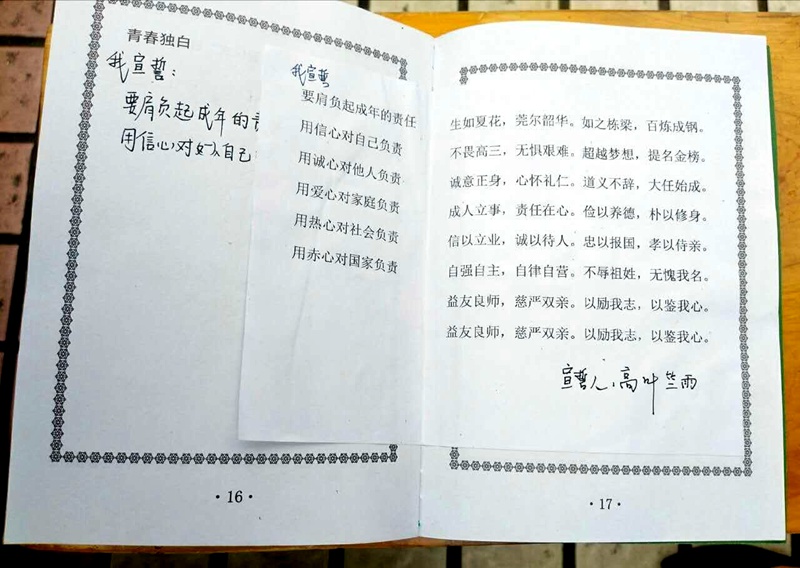 青春独白
我宣誓：
要肩负起成年的责
用信心对
自己
我宣誓
要肩负起成年的责任
用信心对自己负责
用诚心对他人负责
用爱心对家庭负责
用热心对社会负责
用赤心对国家负责
·16·
生如夏花，莞尔韶华。如之栋梁，百炼成钢。
不畏高三，无惧艰难。超越梦想，提名金榜。
诚意正身，心怀礼仁。道义不辞，大任始成。
成人立事，责任在心。俭以养德，朴以修身。
信以立业，诚以待人。忠以报国，孝以侍亲。
自强自主，自律自营。不辱祖姓，无愧我名。
益友良师，慈严双亲。以励我志，以鉴我心。
益友良师，慈严双亲。以励我志，以鉴我心。
宣誓人：高叶竺雨
·17·